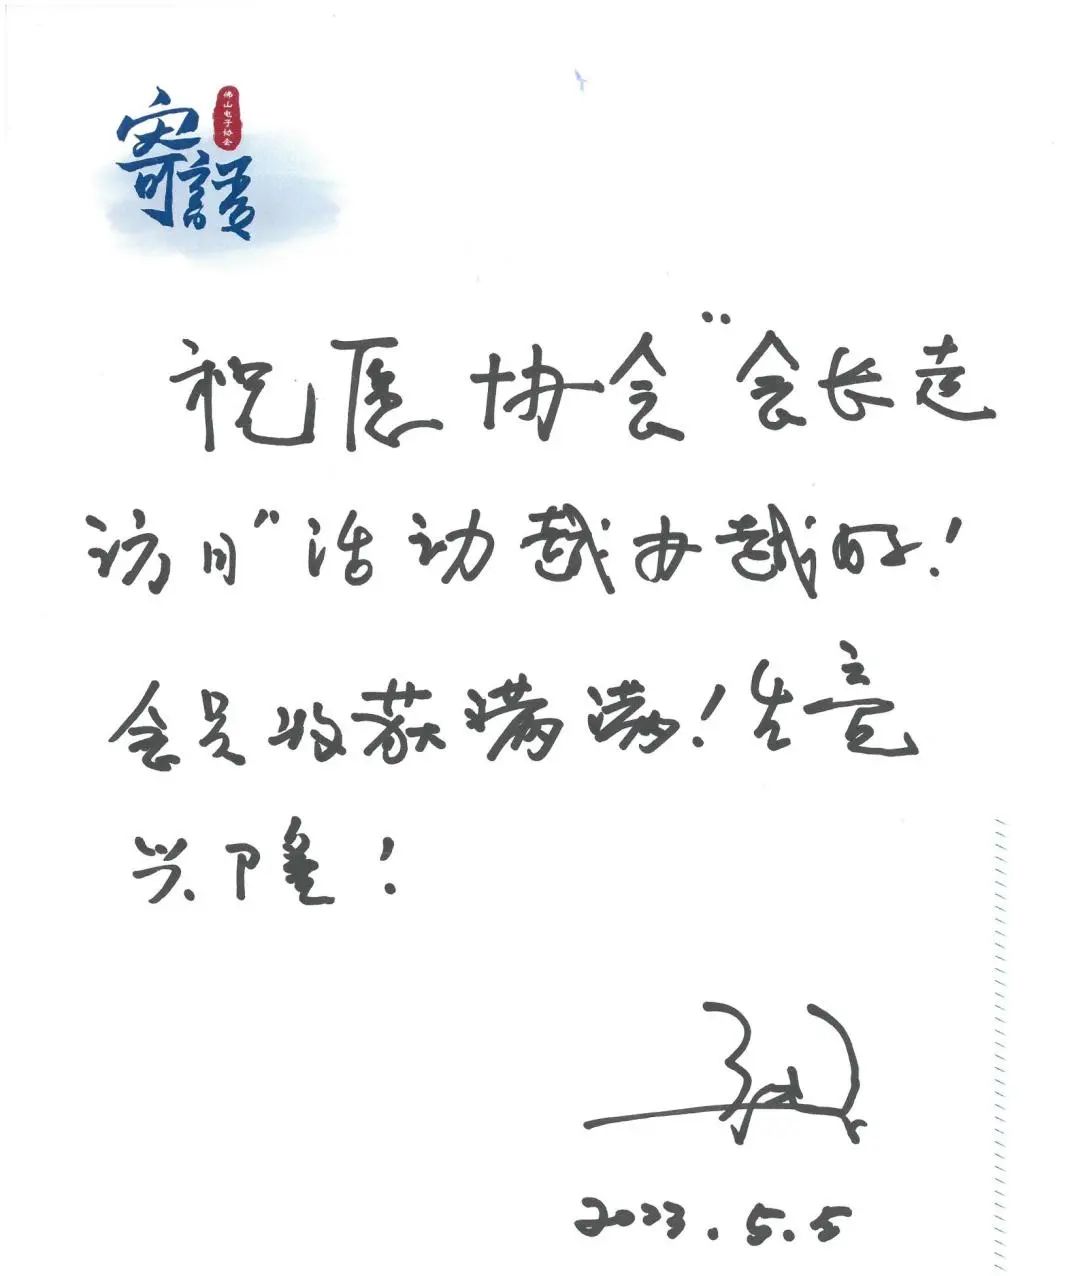 佛山电子协会
寄語
祝愿协会“会长走
访月”活动越办越好！
会员收获满满！生意
兴隆！
2023.5.5